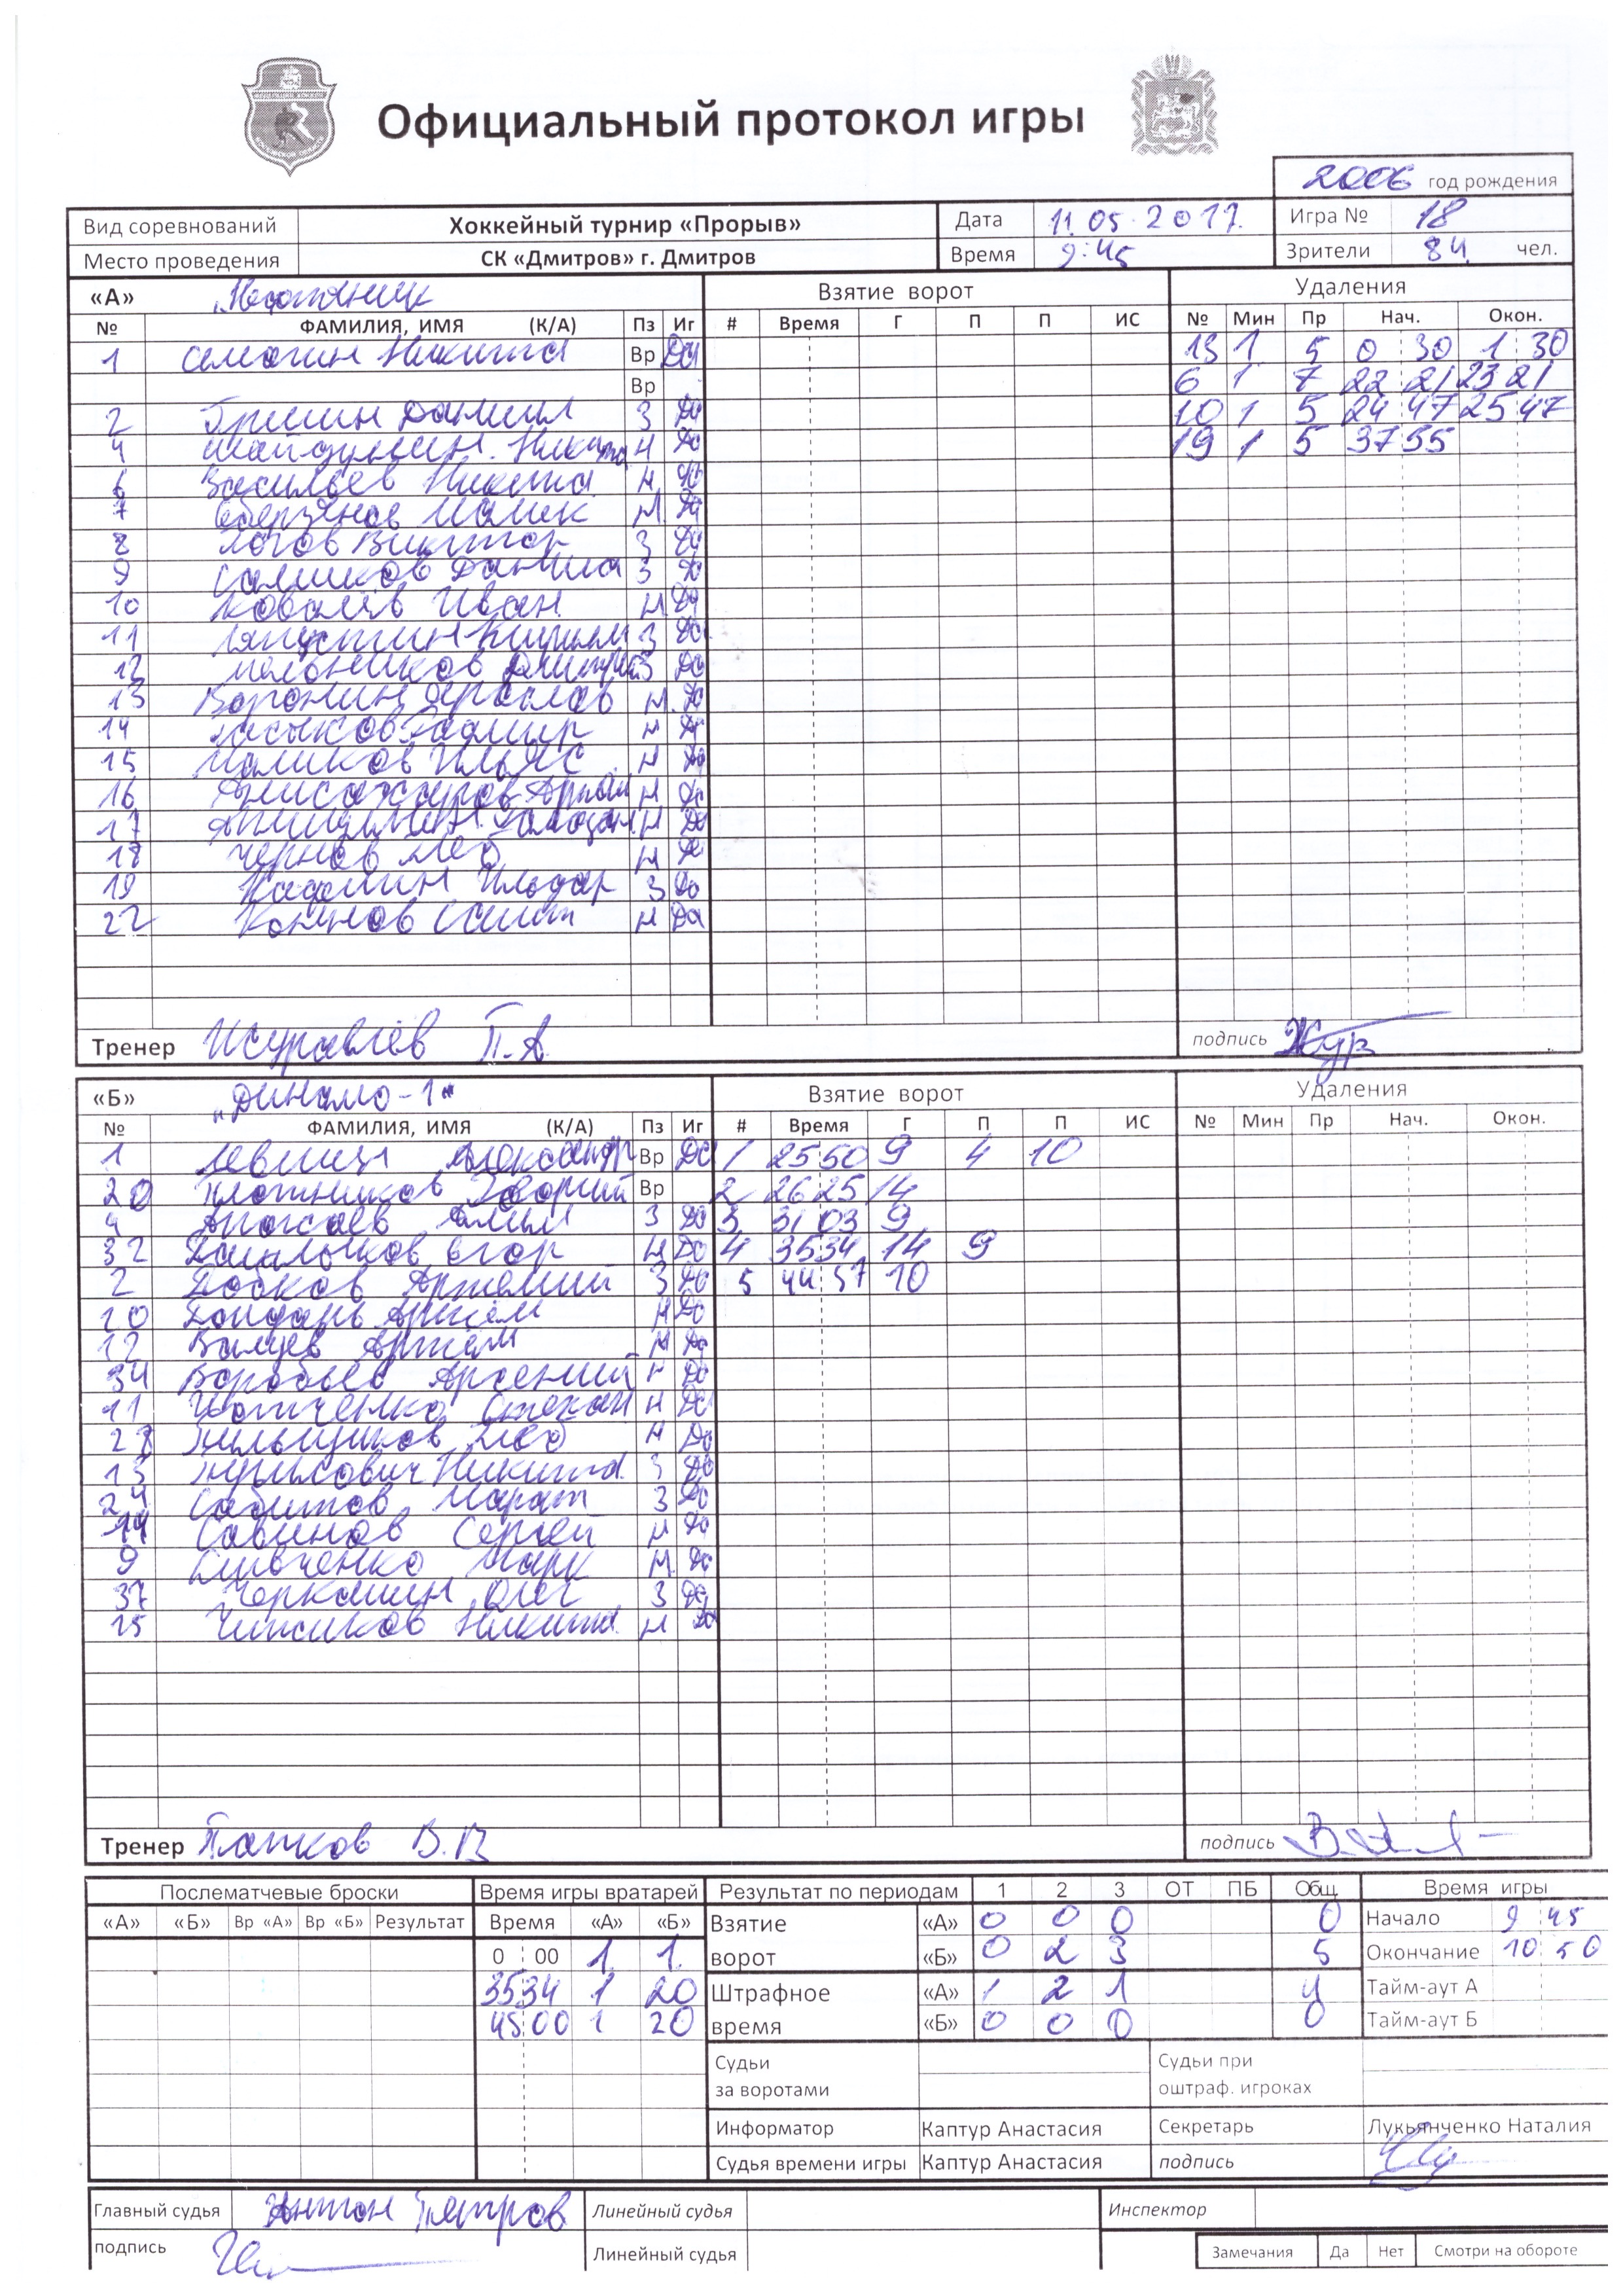 Официальный протокол игры
2006 год рождения
Вид соревнований Хоккейный турнир «Прорыв» Дата 11.05.2017 Игра № 18
Место проведения СК «Дмитров» г. Дмитров Время 9:45 Зрители 84 чел.
«А» Взятие ворот Удаления
№ ФАМИЛИЯ, ИМЯ (К/А) Пз Иг # Время Г П П ИС № Мин Пр Нач. Окон.
1 Никита Вр Да 13 1 5 0 30 1 30
Вр 6 1 7 22 21 23 21
2 Гришин Даниил З Да 10 1 5 24 47 25 47
4 Никита Н Да 19 1 5 37 55
6 Васильев Никита Н Да
7 Малик Н Да
8 Виктор З Да
9 Салихов З Да
10 Ковалёв Иван Н Да
11 Ляпустин Кирилл З Да
12 Дмитрий З Да
13 Воронин Ярослав Н Да
14 Н Да
15 Маликов Ильяс Н Да
16 Н Да
17 Н Да
18 Чернов Лев Н Да
19 Ильдар З Да
22 Н Да
Тренер Журавлёв П.А. подпись
«Б» "Динамо-1" Взятие ворот Удаления
№ ФАМИЛИЯ, ИМЯ (К/А) Пз Иг # Время Г П П ИС № Мин Пр Нач. Окон.
1 Александр Вр Да 1 25 50 9 4 10
20 Плотников Вр 2 26 25 14
4 З Да 3 31 03 9
32 Егор Н Да 4 35 34 14 9
2 Артемий З Да 5 44 57 10
10 Артём Н Да
12 Валуев Артём Н Да
34 Воробьёв Арсений Н Да
11 Степан Н Да
Н Да
13 Никита З Да
24 Сабитов Марат З Да
14 Савинов Сергей Н Да
9 Марк Н Да
37 Черкашин Олег З Да
15 Чижиков Никита Н Да
Тренер В.В. подпись
Послематчевые броски Время игры вратарей Результат по периодам 1 2 3 ОТ ПБ Общ Время игры
«А» «Б» Вр «А» Вр «Б» Результат Время «А» «Б» Взятие «А» 0 0 0 0 Начало 9 45
0 00 1 1 ворот «Б» 0 2 3 5 Окончание 10 50
35 34 1 20 Штрафное «А» 1 2 1 4 Тайм-аут А
45 00 1 20 время «Б» 0 0 0 0 Тайм-аут Б
Судьи Судьи при
за воротами оштраф. игроках
Информатор Каптур Анастасия Секретарь Лукьянченко Наталия
Судья времени игры Каптур Анастасия подпись
Главный судья Антон Петров Линейный судья Инспектор
подпись Линейный судья Замечания Да Нет Смотри на обороте